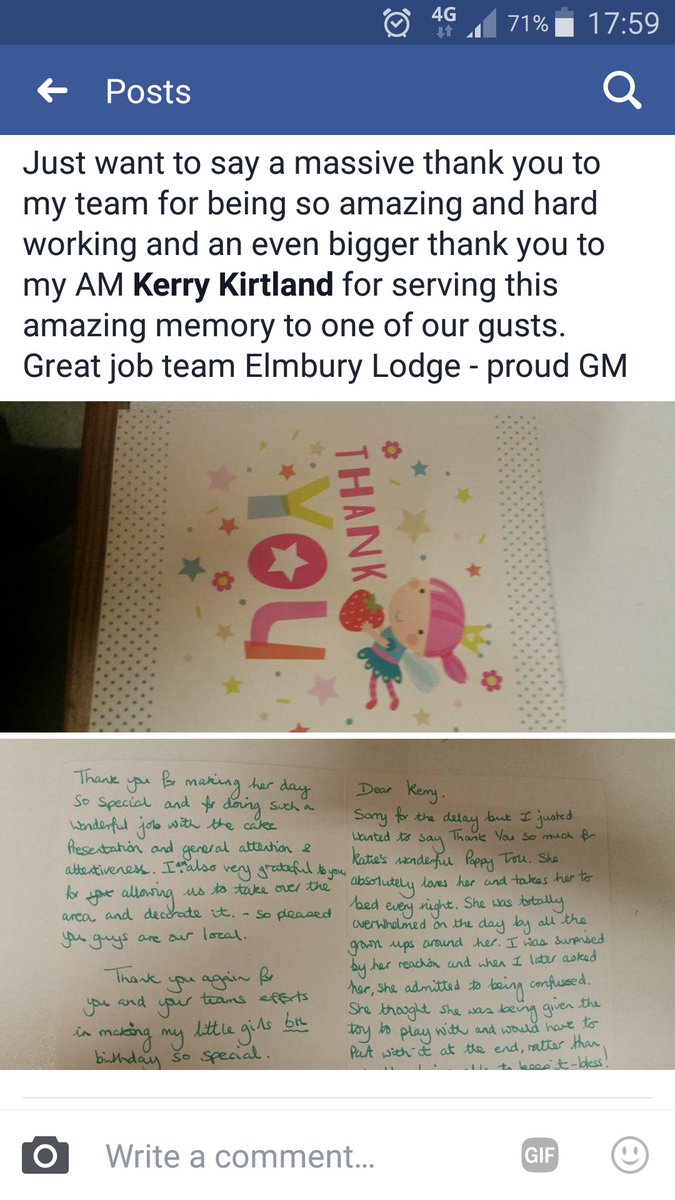 4G 71% 17:59
Posts
Just want to say a massive thank you to
my team for being so amazing and hard
working and an even bigger thank you to
my AM Kerry Kirtland for serving this
amazing memory to one of our gusts.
Great job team Elmbury Lodge - proud GM
THANK
YOU
Thank you for making her day
so special and for doing such a
wonderful job with the cake
presentation and general attention &
attentiveness. I am also very grateful to you
for allowing us to take over the
area and decorate it. - so pleased
you guys are our local.
Thank you again for
you and your teams efforts
in making my little girls 6th
birthday so special.
Dear Kerry,
Sorry for the delay but I justed
wanted to say Thank You so much for
Katie's wonderful Poppy Troll. She
absolutely loves her and takes her to
bed every night. She was totally
overwhelmed on the day by all the
grown ups around her. I was surprised
by her reaction and when I later asked
her, she admitted to being confused.
She thought she was being given the
toy to play with and would have to
part with it at the end, rather than
to keep it - bless!
Write a comment...
GIF